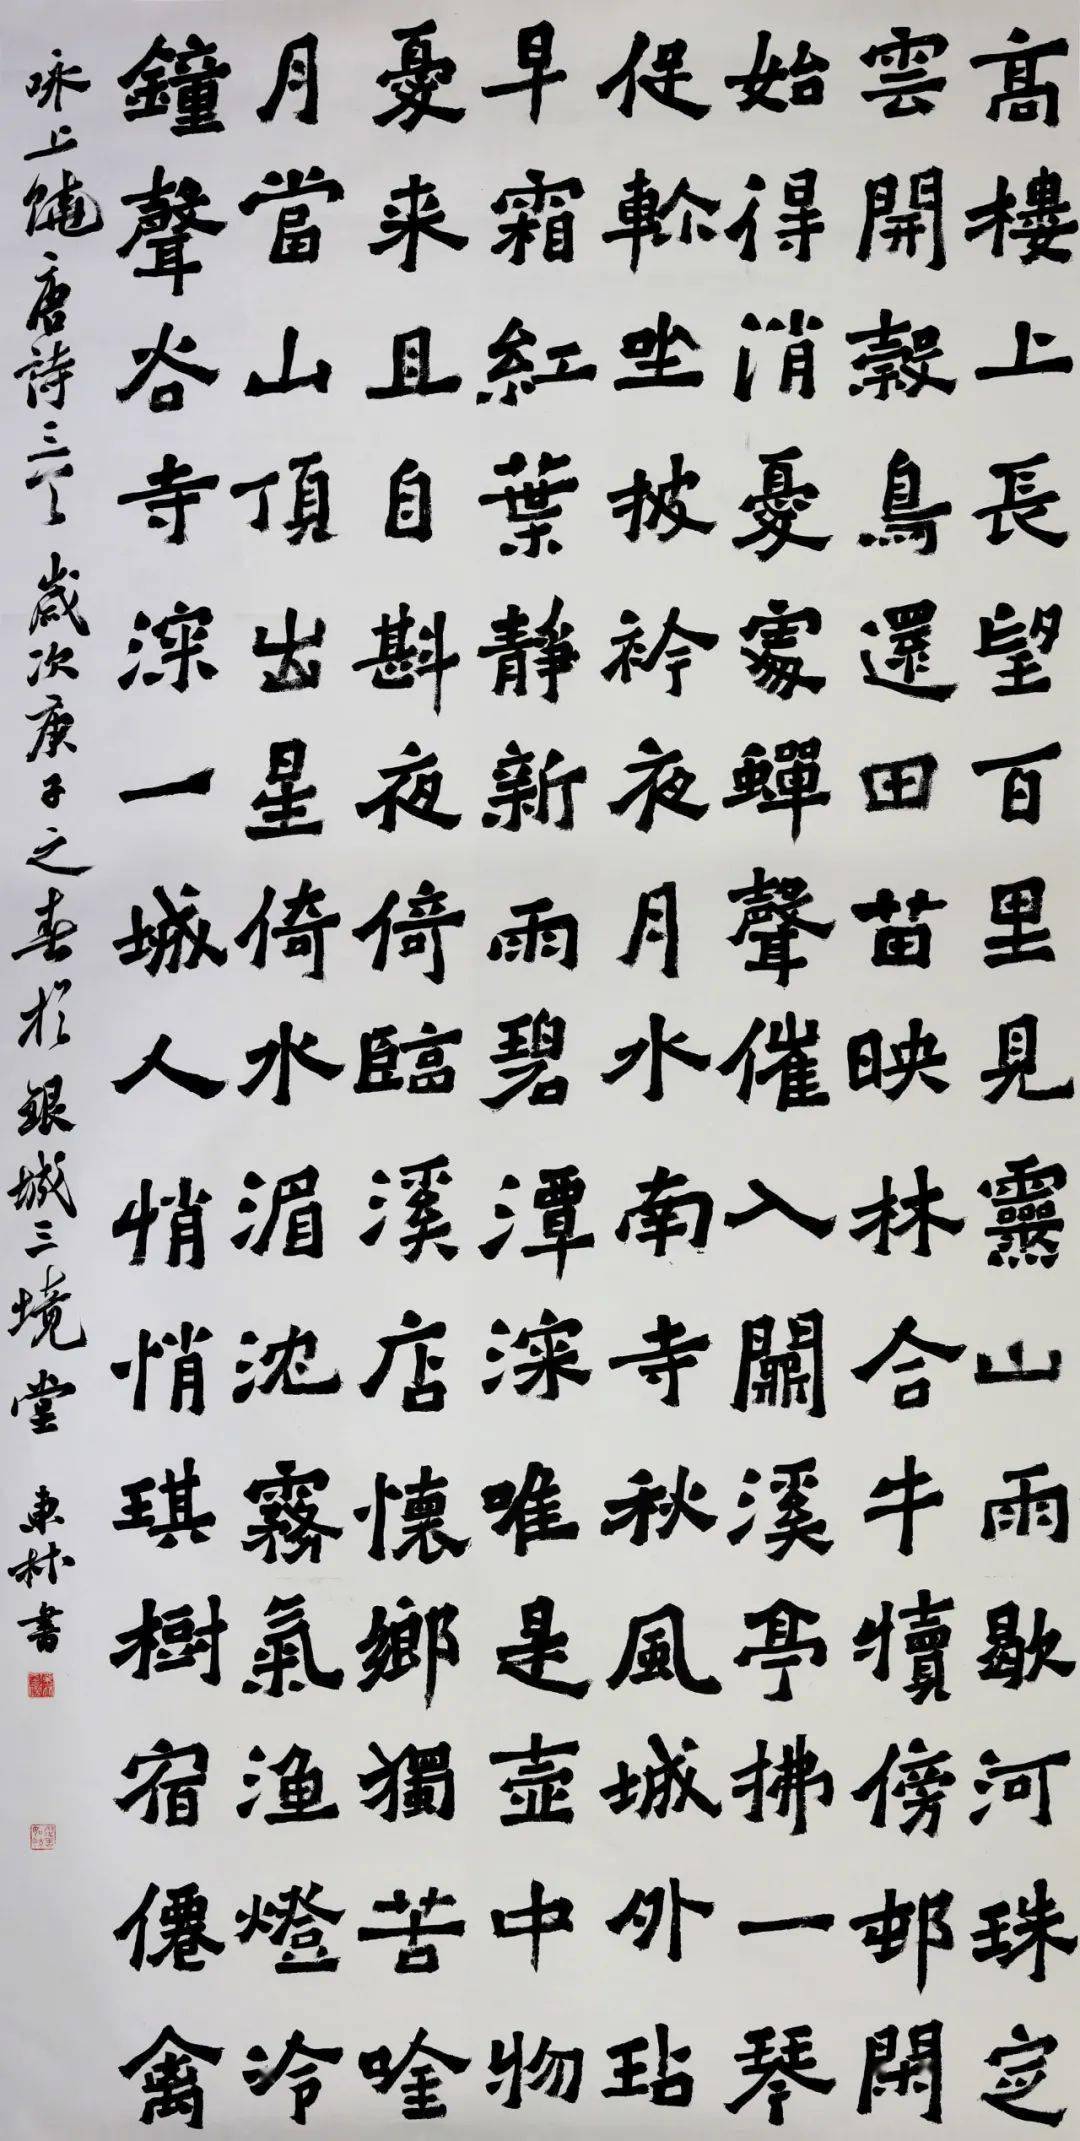 高樓上長望百里見靈山雨歇河珠定
雲開穀鳥還田苗映林合牛犢傍邨閑
始得消憂處蟬聲催入關溪亭拂一琴
促軫坐披衿夜月水南寺秋風城外砧
早霜紅葉靜新雨碧潭深唯是壺中物
憂来且自斟夜倚臨溪店懷鄉獨苦唫
月當山頂出星倚水湄沈霧氣漁燈冷
鐘聲谷寺深一城人悄悄琪樹宿僊禽
咏上饒唐詩三首 歲次庚子之春於銀城三境堂 東林書